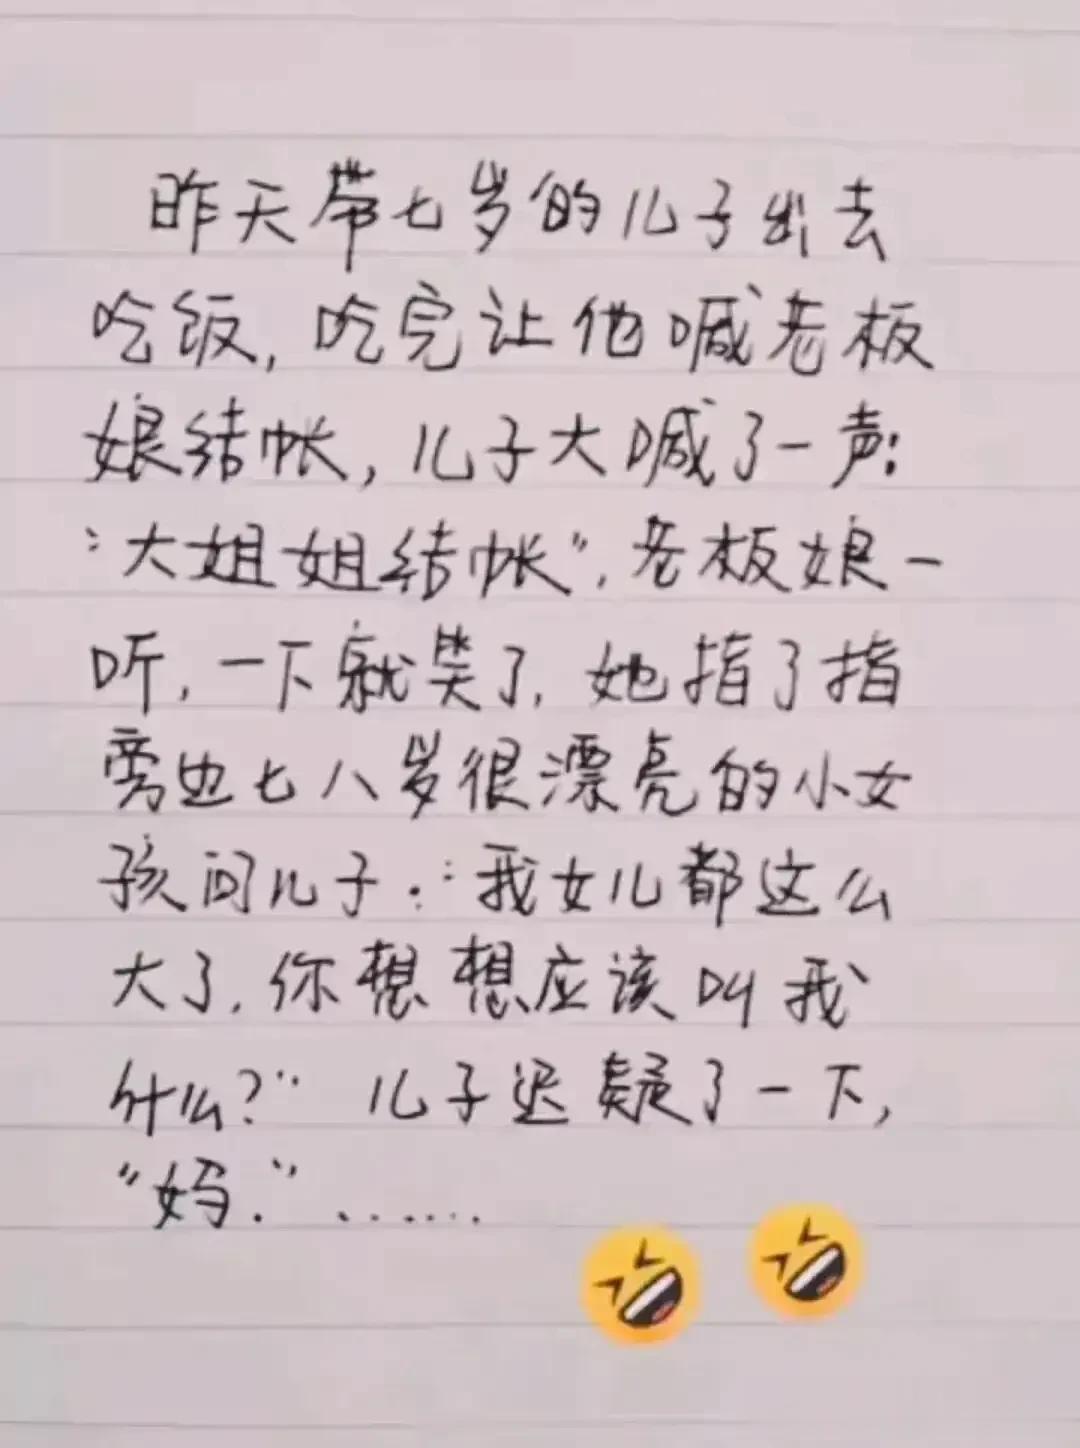 昨天带七岁的儿子出去
吃饭,吃完让他喊老板
娘结帐,儿子大喊了一声:
“大姐姐结帐”,老板娘一
听,一下就笑了,她指了指
旁边七八岁很漂亮的小女
孩问儿子:“我女儿都这么
大了,你想想应该叫我
什么?”儿子迟疑了一下,
“妈.”......